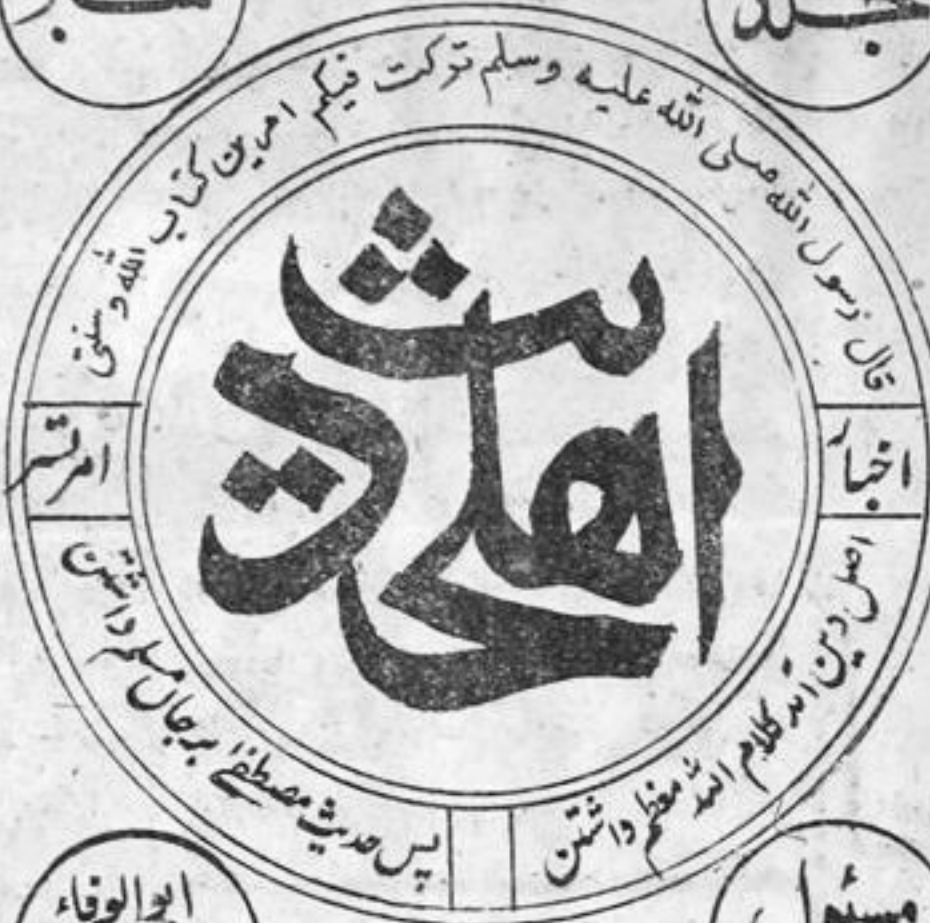 جلد
قال رسول الله صلی الله علیه وسلم ترکت فیکم امرین کتاب الله وسنتی
اخبار
اهلحدیث
امرتسر
اصل دین آمد کلام الله معظم داشتن
پس حدیث مصطفےٰ برجاں مسلم داشتن
ابوالوفاء